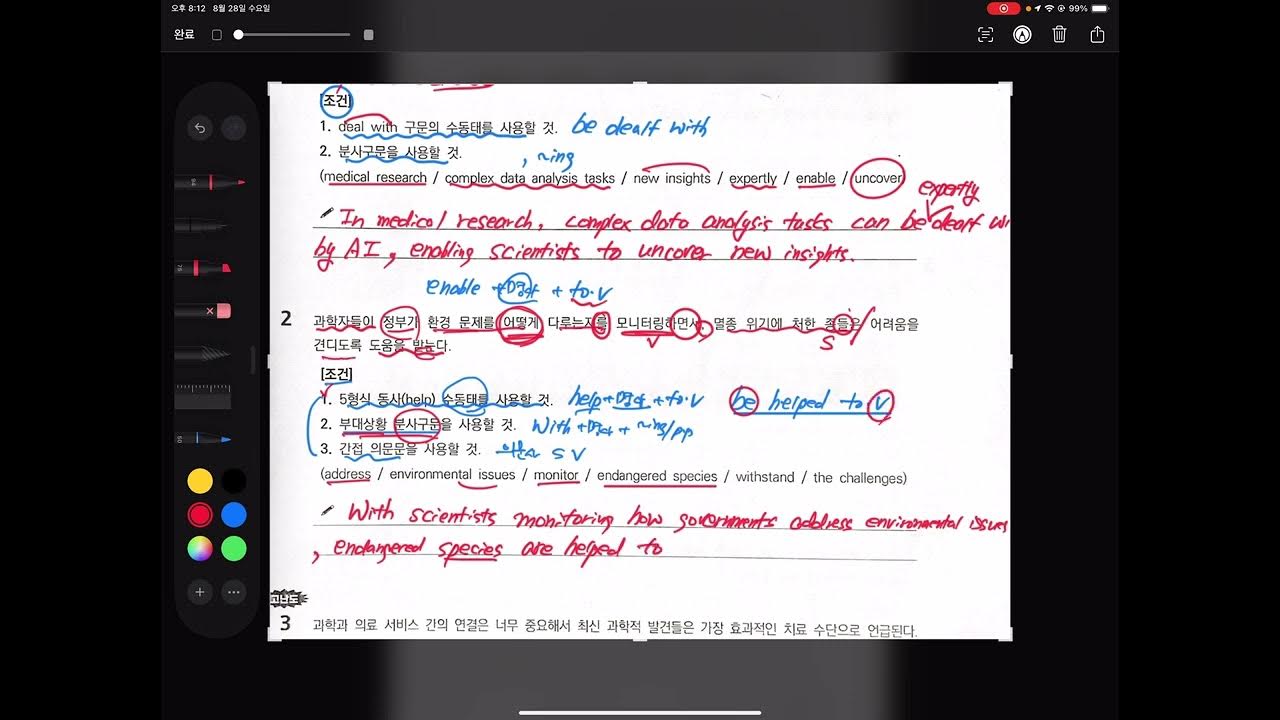 오후 8:12 8월 28일 수요일
99%
완료
[조건]
1. deal with 구문의 수동태를 사용할 것. be dealt with
2. 분사구문을 사용할 것. , ~ing
(medical research / complex data analysis tasks / new insights / expertly / enable / uncover
expertly
In medical research, complex data analysis tasks can be dealt wi
by AI, enabling scientists to uncover new insights.
enable + 명사 + to·V
2 과학자들이 정부가 환경 문제를 어떻게 다루는지를 모니터링하면서, 멸종 위기에 처한 종들은 어려움을
S
V
견디도록 도움을 받는다.
[조건]
1. 5형식 동사(help) 수동태를 사용할 것. help+명사+to·V be helped to V
2. 부대상황 분사구문을 사용할 것. With +명사 + ~ing/pp
3. 간접 의문문을 사용할 것. 의문사 S V
(address / environmental issues / monitor / endangered species / withstand / the challenges)
With scientists monitoring how governments address environmental issues
, endangered species are helped to
고난도
3 과학과 의료 서비스 간의 연결은 너무 중요해서 최신 과학적 발견들은 가장 효과적인 치료 수단으로 언급된다.
94
76
50